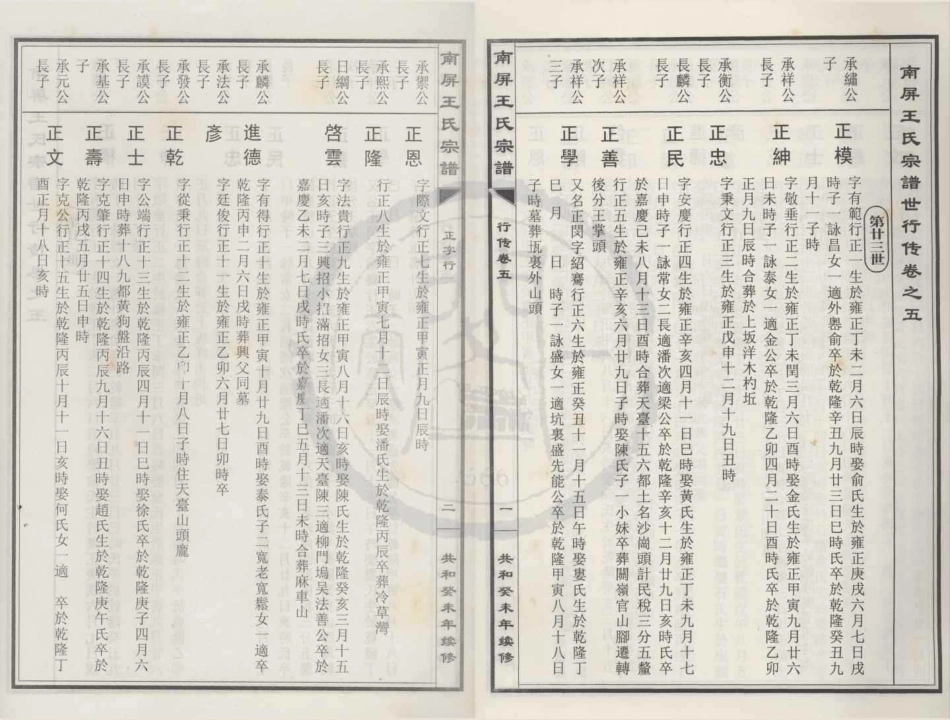 南屏王氏宗譜世行传卷之五
第廿三世
承繡公
子
正模
字有範行正一生於雍正丁未二月六日辰時娶俞氏生於雍正庚戌六月七日戌
時子一詠昌女一適外嶴俞卒於乾隆辛丑九月廿三日巳時氏卒於乾隆癸丑九
月十一子時
承祥公
長子
正紳
字敬垂行正二生於雍正丁未閏三月六日酉時娶金氏生於雍正甲寅九月廿六
日未時子一詠泰女一適金公卒於乾隆乙卯四月二十日酉時氏卒於乾隆乙卯
正月九日辰時合葬於上坂洋木杓坵
承衡公
長子
正忠
字秉文行正三生於雍正戊申十二月十九日丑時
長麟公
長子
正民
字安慶行正四生於雍正辛亥四月十一日巳時娶黃氏生於雍正丁未九月十七
日申時子一詠常女二長適潘次適梁公卒於乾隆辛亥十二月廿九日亥時氏卒
於嘉慶己未八月十三日酉時合葬天臺十五六都土名沙崗頭計民稅三分五釐
承祥公
次子
正善
行正五生於雍正辛亥六月廿九日子時娶陳氏子一小妹卒葬關嶺官山腳遷轉
後分王掌頭
承祥公
三子
正學
又名正閔字紹騫行正六生於雍正癸丑十一月十五日午時娶婁氏生於乾隆丁
巳 月 日 時子一詠盛女一適坑裏盛先能公卒於乾隆甲寅八月十八日
子時墓葬坻裏外山頭
南屏王氏宗譜
行传卷五
一
共和癸未年续修
南屏王氏宗譜
正字行
二
共和癸未年续修
承禦公
長子
正恩
字際文行正七生於雍正甲寅正月九日辰時
承熙公
長子
正隆
行正八生於雍正甲寅七月十二日辰時娶潘氏生於乾隆丙辰卒葬冷草灣
日綱公
長子
啓雲
字法貴行正九生於雍正甲寅八月十六日亥時娶陳氏生於乾隆癸亥三月十五
日亥時子三興招小招滿招女三長適潘次適天臺陳三適柳門塢吴法善公卒於
嘉慶乙未二月七日戌時氏卒於嘉慶丁巳五月十三日未時合葬麻車山
承麟公
長子
進德
字有得行正十生於雍正甲寅十月廿九日酉時娶泰氏子二寬老寬鬆女一適卒
乾隆丙申二月六日戌時葬興父同墓
承法公
長子
彥
字廷俊行正十一生於雍正乙卯六月廿七日卯時卒
承發公
長子
正乾
字從秉行正十二生於雍正乙卯十月八日子時住天臺山頭龐
承謨公
長子
正士
字公端行正十三生於乾隆丙辰四月十一日巳時娶徐氏卒於乾隆庚子四月六
日申時葬十八九都黄狗盤沿路
承基公
子
正壽
字克肇行正十四生於乾隆丙辰九月十六日丑時娶趙氏生於乾隆庚午氏卒於
乾隆丙戌五月廿五日申時
承元公
長子
正文
字克公行正十五生於乾隆丙辰十月十一日亥時娶何氏女一適 卒於乾隆丁
酉正月十八日亥時